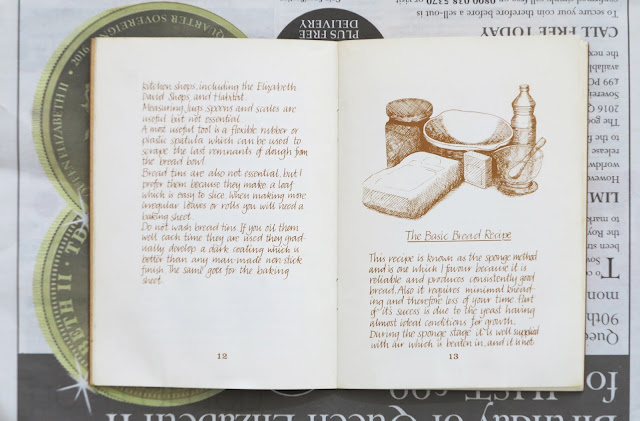 kitchen shops, including the Elizabeth
David Shops, and Habitat.
Measuring jugs, spoons and scales are
useful but not essential.
A most useful tool is a flexible rubber or
plastic spatula which can be used to
scrape the last remnants of dough from
the bread bowl.
Bread tins are also not essential, but I
prefer them because they make a loaf
which is easy to slice. When making more
irregular loaves or rolls you will need a
baking sheet.
Do not wash bread tins. If you oil them
well each time they are used they grad-
ually develop a dark coating which is
better than any man-made non stick
finish. The same goes for the baking
sheet.
12
The Basic Bread Recipe
This recipe is known as the sponge method
and is one which I favour because it is
reliable and produces consistently good
bread. Also it requires minimal knead-
ing and therefore less of your time. Part
of it's success is due to the yeast having
almost ideal conditions for growth.
During the sponge stage it is well supplied
with air which is beaten in, and it is not
13
QUARTER SOVEREIGN
2016
QUEEN ELIZABETH II
PLUS FREE
DELIVERY
To secure your coin therefore before a sell-out
0800 018 5370
CALL FREE TODAY
£99 PO
2016 Q
The goo
to the fa
release
worldwi
However
LIM
to mark
the Roy
been str
mon
90th
for JUST £99
Birthday of Queen Elizabeth II